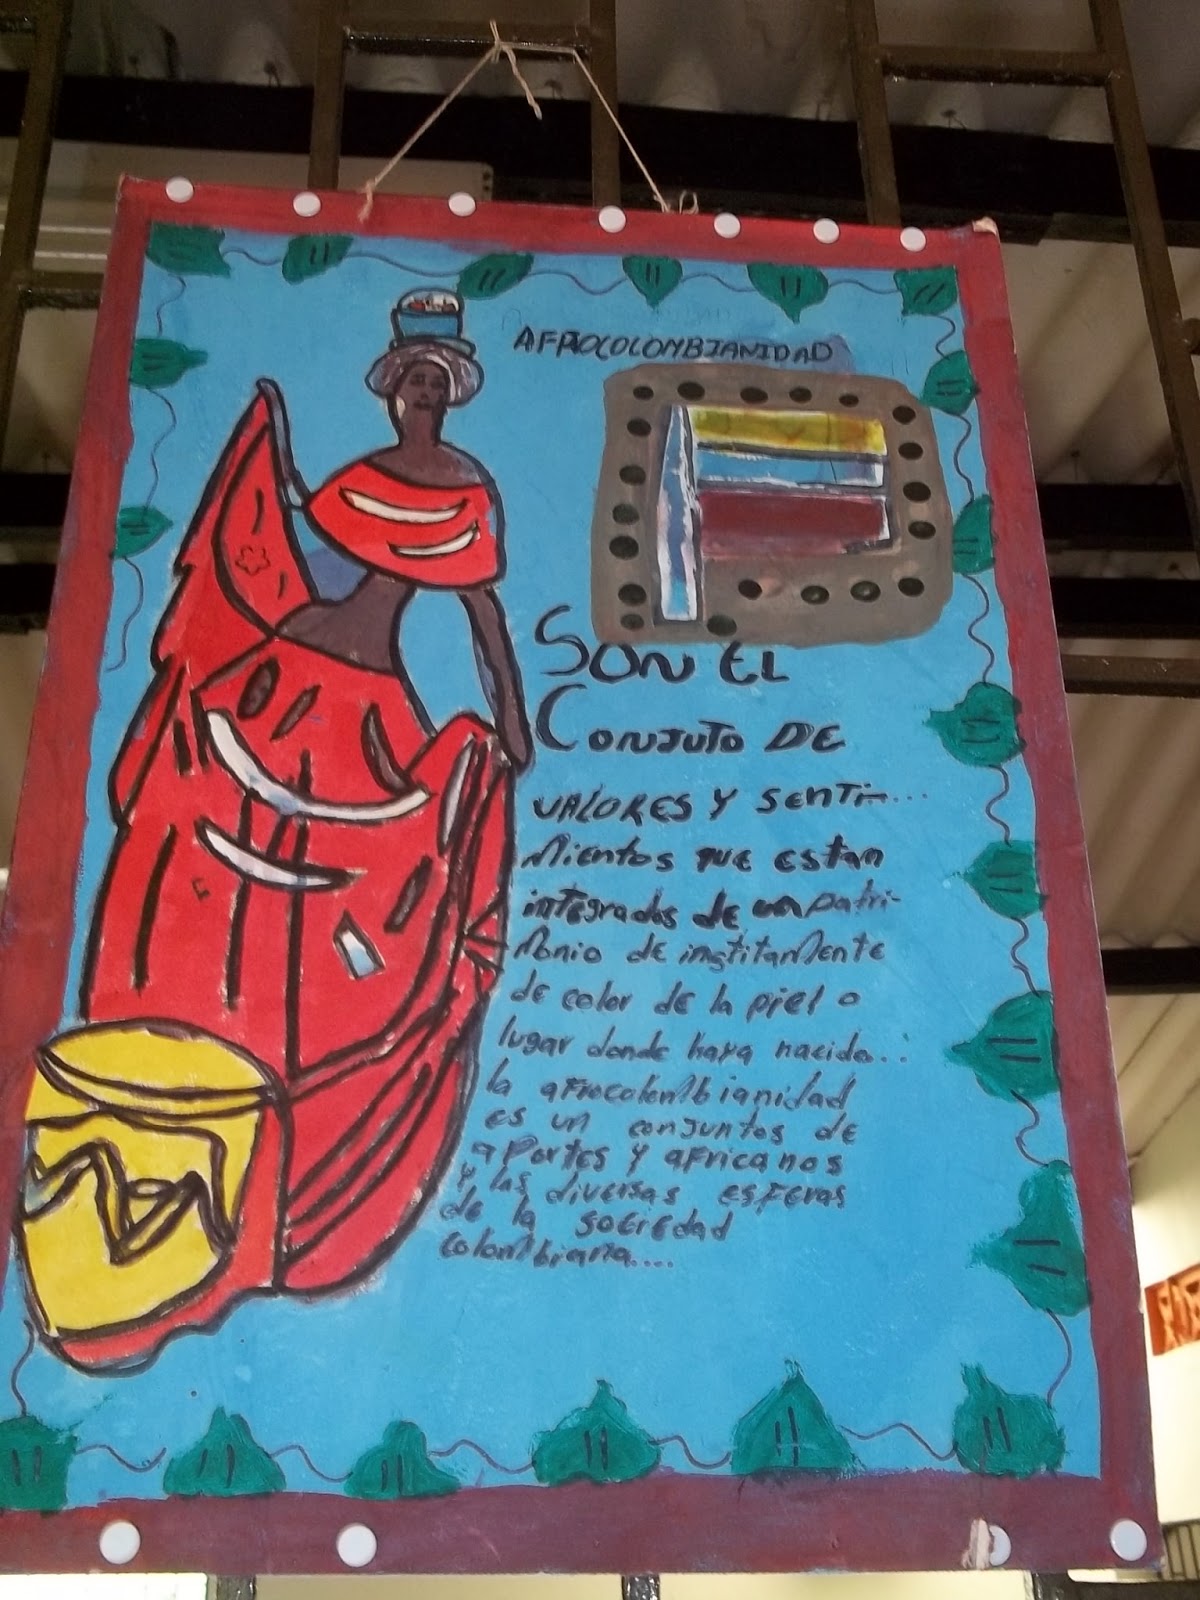 AFROCOLOMBIANIDAD
SON EL
CONJUTO DE
VALORES Y SENTI-...
Mientos que estan
integrados de un patri-
Monio de institamente
de color de la piel o
lugar donde haya nacido...
la afrocolombianidad
es un conjuntos de
aportes y africanos
y las diversas esferas
de la sociedad
colombiana....